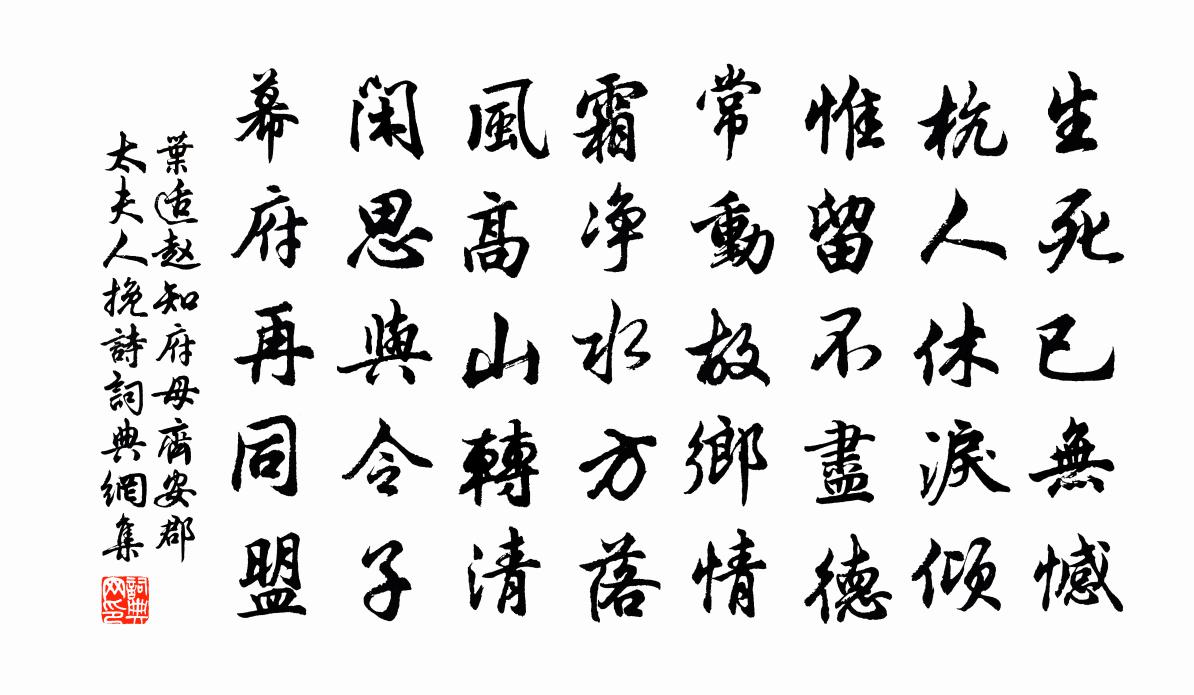 生死已無憾
杭人休淚傾
惟留不盡德
常動故鄉情
霜净水方落
風高山轉清
閑思與令子
幕府再同盟
葉适赵知府母齊安郡
太夫人挽詩詞典網集
詞典
网印